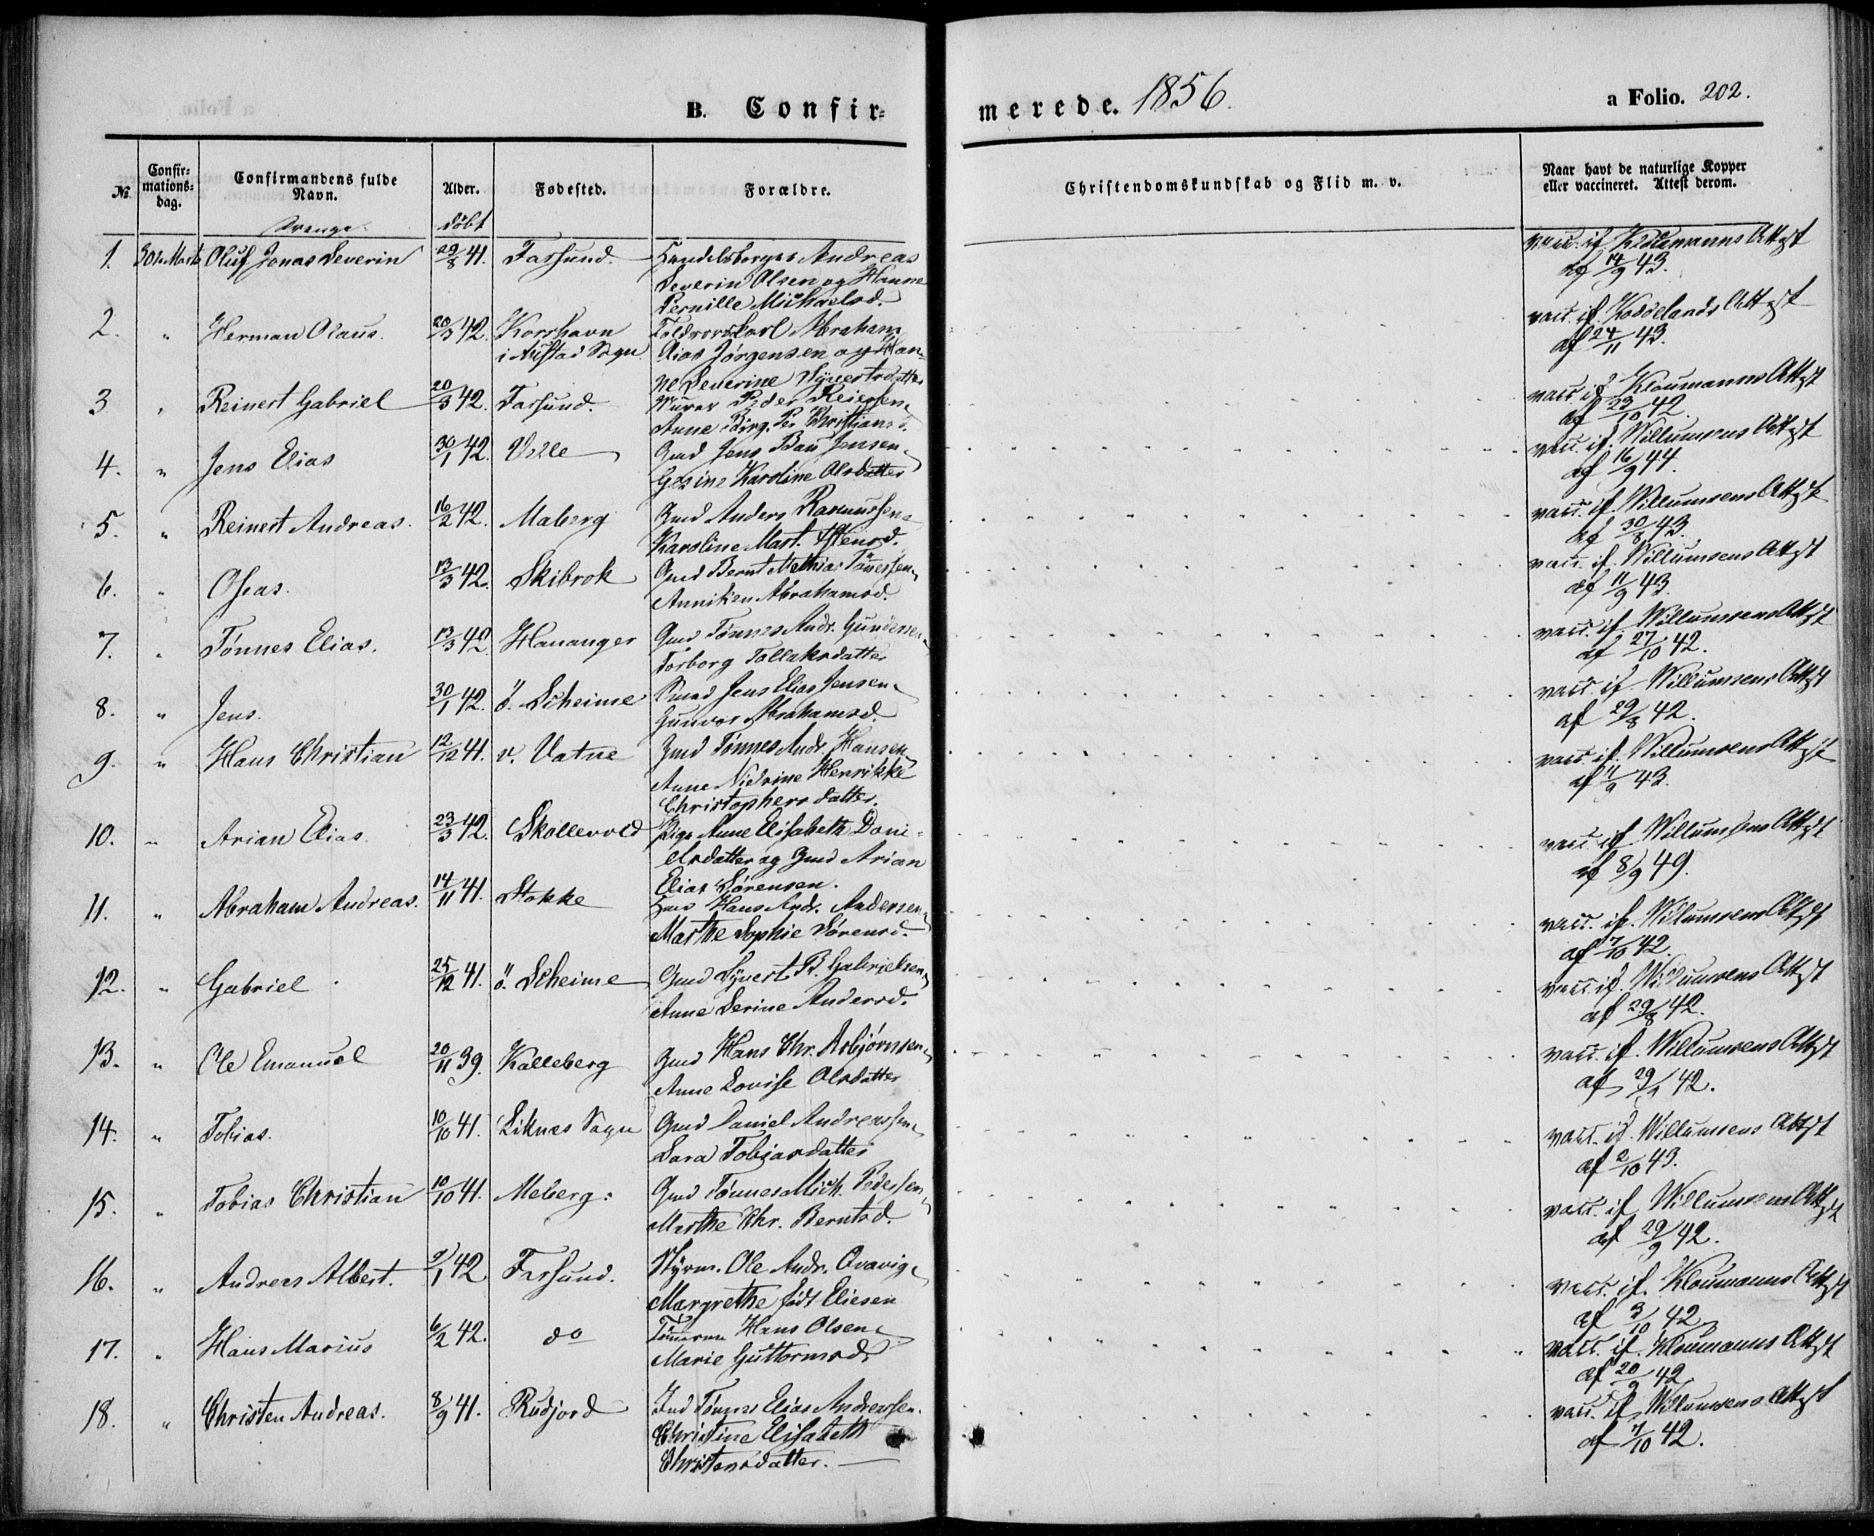 B. Confir-
merede. 1856.
a Folio. 202.
№
Confir-
mations-
dag.
Confirmandens fulde
Navn.
Alder.
Fødested.
Forældre.
Christendomskundskab og Flid m. v.
Naar havt de naturlige Kopper
eller vaccineret. Attest derom.
Drenge.
døbt
1. 30te Marts Oluf Jonas Severin 29/8 41. Farsund. Handelsborger Andreas
Severin Olsen og Hanne
Pernille Michaelsd.
vacc. if Attest
af 14/9 43.
2. " Herman Olaus. 20/3 42. Korshavn Abraham
i Austad Sogn Jørgensen og Han-
ne Severine Syvertsdatter
vacc. if Attest
af 24/11 43.
3 " Reinert Gabriel 20/3 42. Farsund. Murer Peder Reiersen,
Anne Birg. Christiansd.
vacc if Kloumanns Attest
af 23/10 42.
4. " Jens Elias 30/1 42. Velle Gmd Jens Jensen,
Gesine Karoline Olsdatter
vacc. if. Willumsens Attest
af 16/9 44.
5. " Reinert Andreas. 16/2 42. Maberg Gmd Anders Rasmussen,
Karoline Mart.
vacc. if. Willumsens Attest
af 30/8 43.
6. " Oseas. 13/3 42. Skibrok Gmd Bernt Mathias Tønnessen,
Anniken Abrahamsd.
vacc. if. Willumsens Attest
af 11/9 43.
7. " Tønnes Elias. 13/3 42 Hananger Gmd Tønnes Andr. Gundersen,
Torborg Tollaksdatter
vacc. if Willumsens Attest
af 27/10 42.
8. " Jens. 30/1 42. ö. Scheime Gmd Jens Elias Jensen,
Gunvor Abrahamsd.
vacc. if Willumsens Attest
af 29/8 42.
9. " Hans Christian 12/12 41. v. Vatne Gmd Tønnes Andr. Hansen,
Anne Henrikke
Christophersdatter.
vacc. if. Willumsens Attest
af 11/9 43.
10. " Arian Elias. 23/3 42. Skollevold Pige Anne Elisabeth Dani-
elsdatter og Gmd Arian
Elias Sørensen.
vacc. if Willumsens Attest
af 8/9 49.
11. " Abraham Andreas. 14/11 41. Stokke Hans Andr. Andersen,
Marthe Sophie Sørensd.
vacc. if. Willumsens Attest
af 7/10 42
12. " Gabriel 25/12 41. ö. Scheime Gmd Syvert Gabrielsen,
Anne Serine Andersd.
vacc. if. Willumsens Attest
af 29/8 42.
13. " Ole Emanuel 20/11 39. Kalleberg Gmd Hans Chr. Asbjørnsen,
Anne Lovise Olsdatter
vacc. if. Willumsens Attest
af 42.
14. " Tobias. 10/10 41. Liknes Sogn Gmd Daniel Andreassen,
Sara Tobiasdatter
vacc. if. Willumsens Attest
af 2/10 43.
15. " Tobias Christian 10/10 41. Meberg. Gmd Tønnes Mich. Pedersen,
Marthe Chr. Berntsd.
vacc. if Willumsens Attest
af 29/9 42.
16. " Andreas Albert. 9/1 42 Farsund. Styrm. Ole Andr. Qvavig,
Margrethe født Eliesen
vacc. if. Kloumanns Attest
af 3/10 42
17. " Hans Marius 6/2 42. do Tømmerm Hans Olsen,
Marie Guttormsd.
vacc. if. Kloumanns Attest
af 20/9 42
18. " Christen Andreas. 8/9 41. Rudjord Ind Tønnes Elias Andreassen.
Christine Elisabeth
Christensdatter.
vacc. if Willumsens Attest
af 7/10 42.